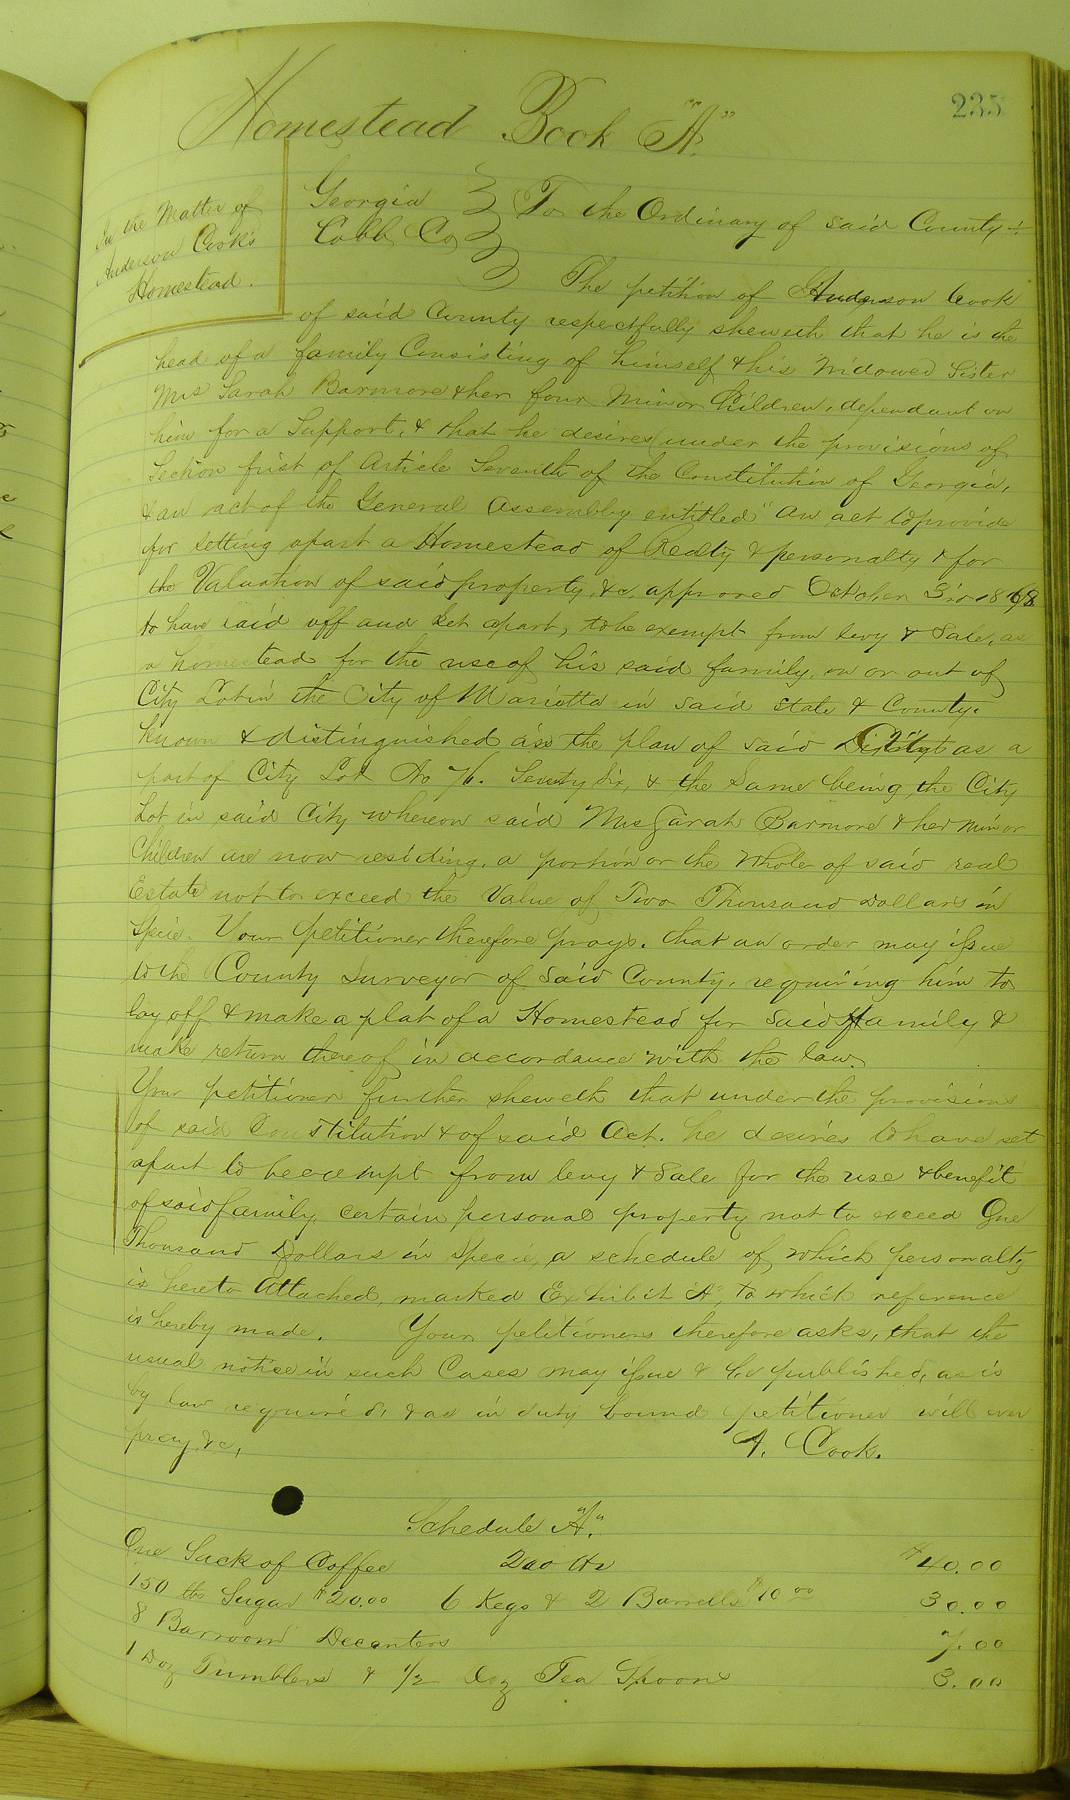 235
Homestead Book "A"
In the Matter of
Anderson Cook's
Homestead.
Georgia
Cobb Co
To the Ordinary of said County
The petition of Anderson Cook
of said County respectfully sheweth that he is the
head of a family Consisting of himself & his Widowed Sister
Mrs Sarah Barmore & her four Minor Children, dependant on
him for a Support, & that he desires under the provisions of
Section first of Article Seventh of the Constitution of Georgia,
& an act of the General Assembly entitled "An act to provide
for setting apart a Homestead of Realty & personalty & for
the Valuation of said property, &c, approved October 3rd 1868
to have laid off and set apart, to be exempt from levy & Sale, as
a homestead for the use of his said family, on or out of
City Lot in the City of Marietta in said State & County.
Known & distinguished in the plan of said City as a
part of City Lot No 76. Seventy Six, & the Same being the City
Lot in said City whereon said Mrs Sarah Barmore & her minor
Children are now residing, a portion or the whole of said real
Estate not to exceed the Value of Two Thousand Dollars in
Specie. Your petitioner therefore prays. that an order may issue
to the County Surveyor of said County, requiring him to
lay off & make a plat of a Homestead for said family &
make return thereof in accordance with the law.
Your petitioner further sheweth that under the provisions
of said Constitution & of said Act. he desires to have set
apart to be exempt from levy & Sale for the use & benefit
of said family, certain personal property not to exceed One
Thousand Dollars in Specie, a schedule of which personalty
is hereto Attached, marked Exhibit A, to which reference
is hereby made. Your petitioners therefore asks, that the
usual notice in such Cases may issue & be published, as is
by law required, & as in duty bound petitioner will ever
pray &c,
A. Cook.
Schedule "A".
One Sack of Coffee 200 lbs $40.00
150 lbs Sugar $20.00 6 Kegs & 2 Barrells $10 00 30.00
8 Barroom Decanters 7.00
1 Doz Tumblers & 1/2 Doz Tea Spoons 3.00